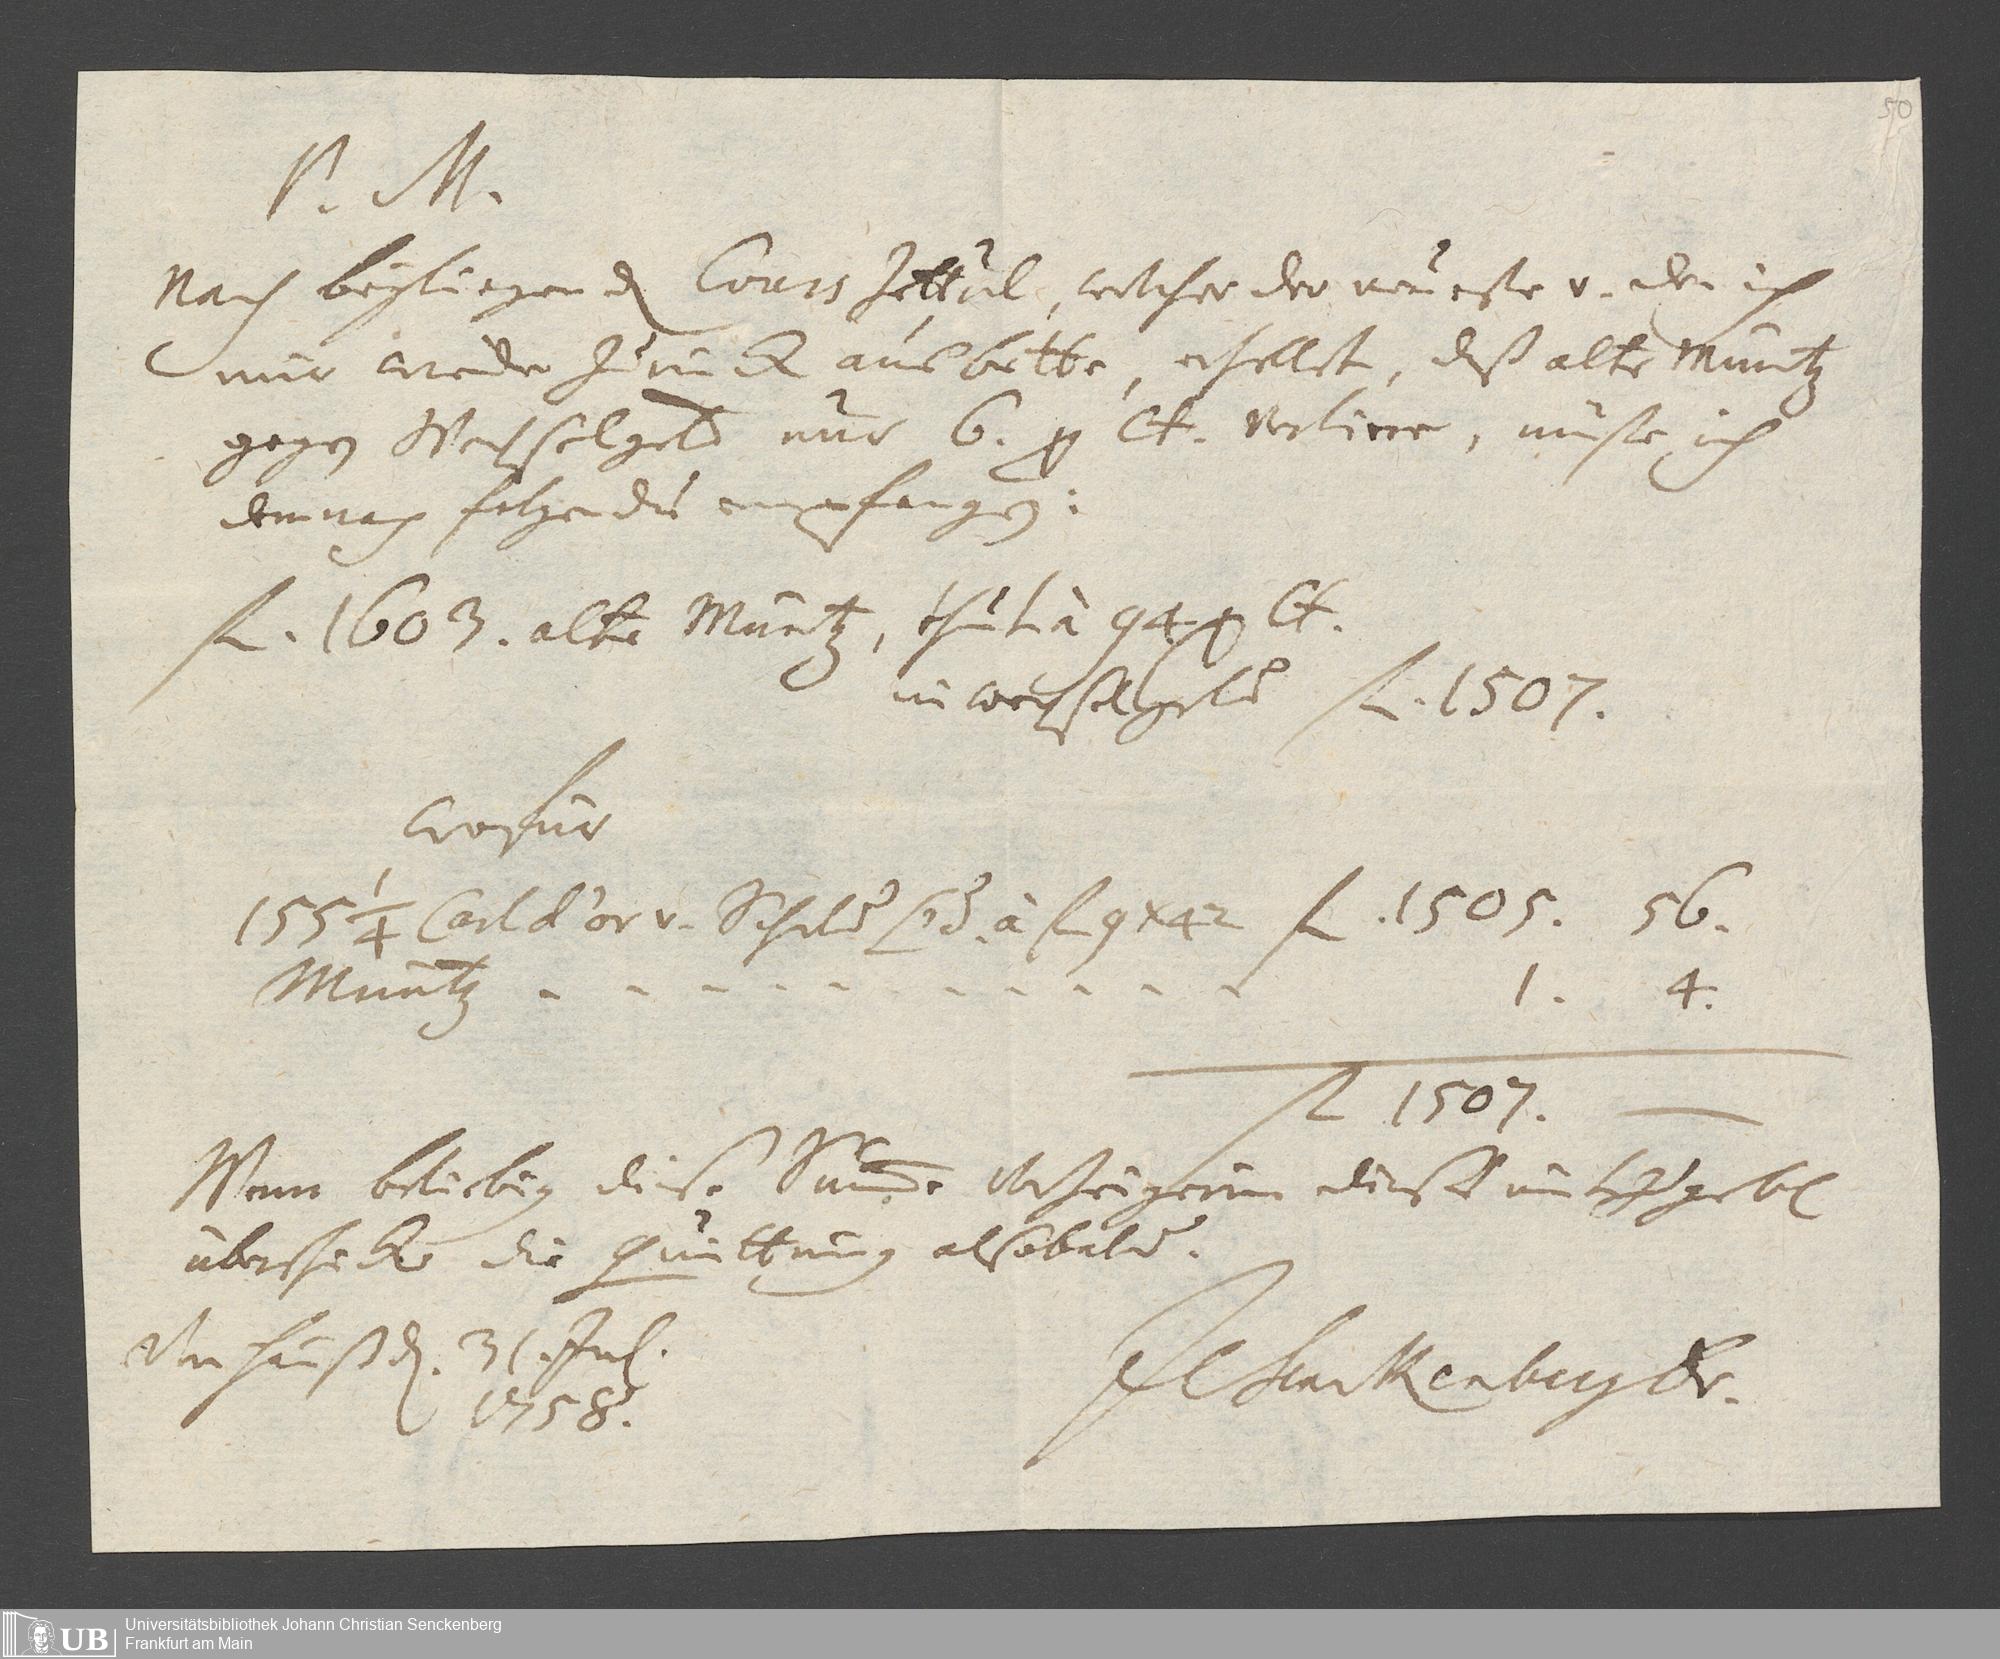 50
P. M.
Nach beyliegend Cours Zettul, welcher der neueste v. den ich
mir wieder zurück ausbitte, erhellet, daß alte Müntz
gegen Wechselgeld nur 6. p Ct. verliere, müste ich
demnach folgendes empfangen:
fl. 1603. alte Müntz, thut à 94 p Ct.
in wechselgeld fl. 1507.
wofür
155 1/4 Carl d'or v. Schild à fl 9 x 42 fl. 1505. 56.
Müntz - - - - - - - - - - 1. 4.
fl 1507. —
Wenn beliebig diese Summe
überschicke die quittung alsobald.
Von Hauß d. 31. Jul.
1758.
JC Senckenberg Dr.
UB
Universitätsbibliothek Johann Christian Senckenberg
Frankfurt am Main